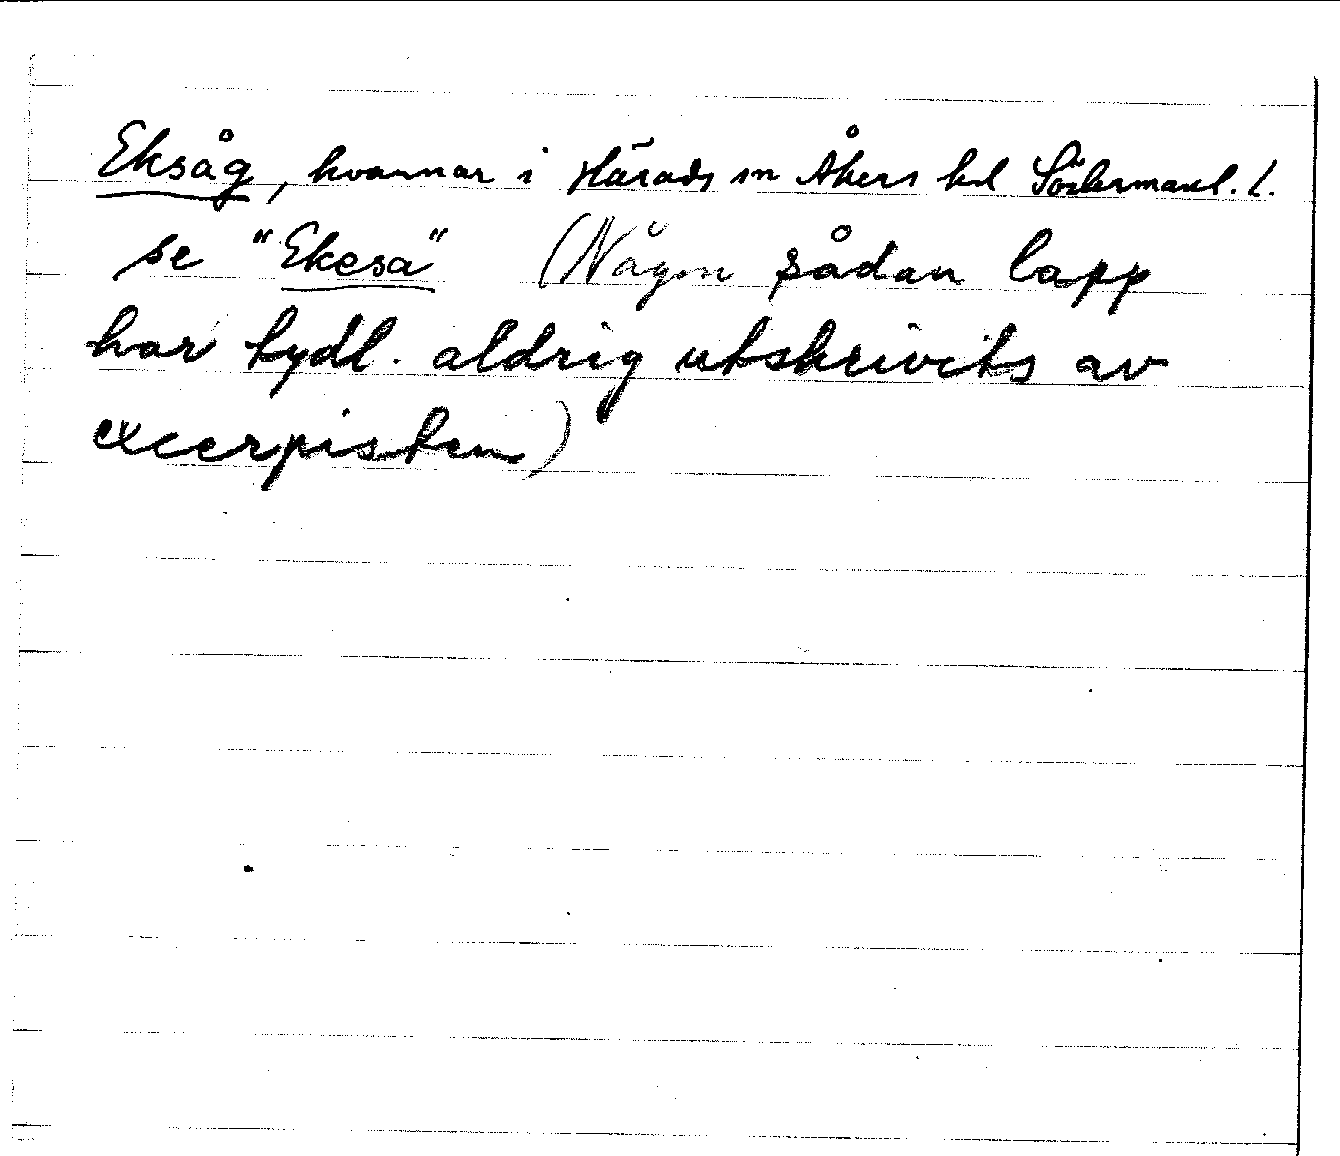 Eksåg, kvarnar i Härads sn Åkers hd Södermanl. l.
se "Ekesa" (Någon sådan lapp
har tydl. aldrig utskrivits av
excerpisten)